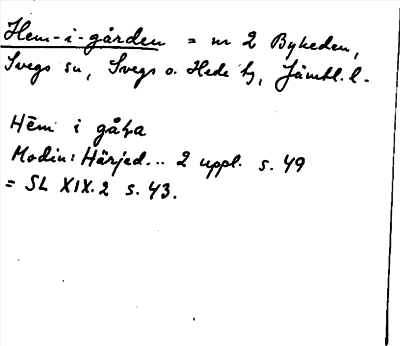 Hem-i-gården = nr 2 Byheden,
Svegs sn, Svegs o. Hede tg, Jämtl. l.
Hēm i gåḷa
Modin: Härjed... 2 uppl. s. 49
= SL XIX.2 s. 43.